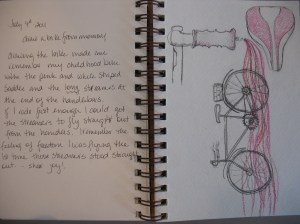 July 4th 2011
draw a bike from memory
drawing the bike made me
remember my childhood bike
with the pink and white striped
saddle and the long streamers at
the end of the handlebars.
if I rode fast enough I could get
the streamers to fly straight out
from the handles. I remember the
feeling of freedom I was flying the
1st time those streamers stood straight
out - sheer joy!